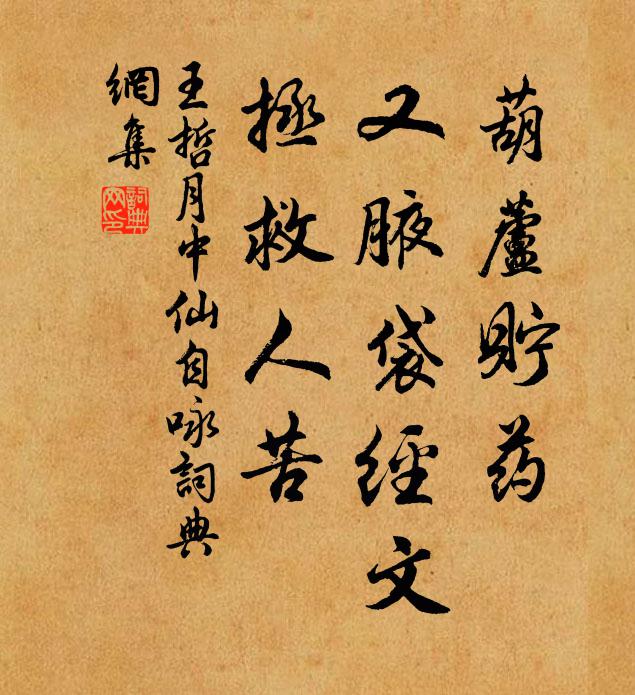 葫蘆貯药
又腋袋經文
拯救人苦
王哲月中仙自咏詞典
網集
詞典网印